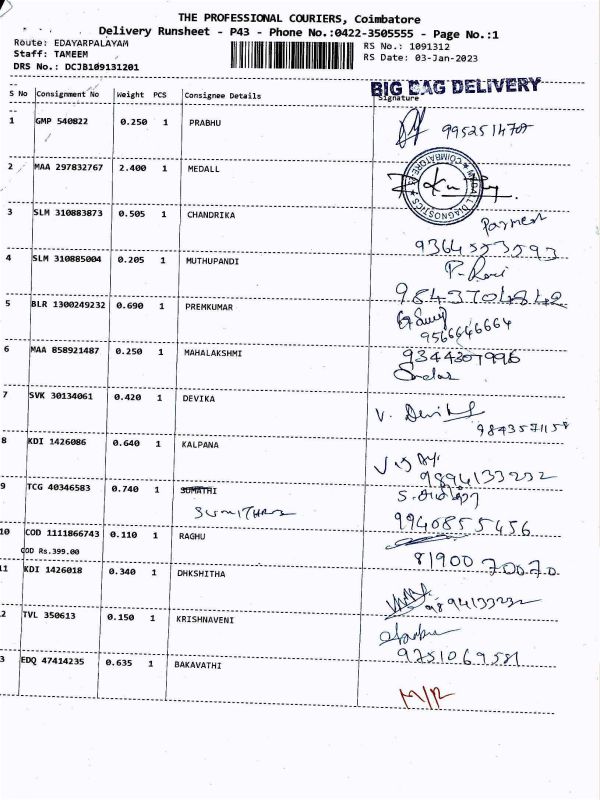 THE PROFESSIONAL COURIERS, Coimbatore
Delivery Runsheet - P43 - Phone No.:0422-3505555 - Page No.:1
Route: EDAYARPALAYAM
Staff: TAMEEM
DRS No.: DCJB109131201
RS No.: 1091312
RS Date: 03-Jan-2023
BIG BAG DELIVERY
S No Consignment No Weight PCS Consignee Details Signature
1 GMP 540822 0.250 1 PRABHU
2 MAA 297832767 2.400 1 MEDALL
MEDALL DIAGNOSTICS COIMBATORE
3 SLM 310883873 0.505 1 CHANDRIKA
9364553593
4 SLM 310885004 0.205 1 MUTHUPANDI
P. Ravi
9843704842
5 BLR 1300249232 0.690 1 PREMKUMAR
9566646664
6 MAA 858921487 0.250 1 MAHALAKSHMI
9344307996
7 SVK 30134061 0.420 1 DEVIKA
V. Devika
9843571158
8 KDI 1426086 0.640 1 KALPANA
9894133232
9 TCG 40346583 0.740 1 SUMATHI
9940855456
10 COD 1111866743 0.110 1 RAGHU
COD Rs.399.00
81900 70070
11 KDI 1426018 0.340 1 DHKSHITHA
9894133232
2 TVL 350613 0.150 1 KRISHNAVENI
9751069581
3 EDQ 47414235 0.635 1 BAKAVATHI
M/R